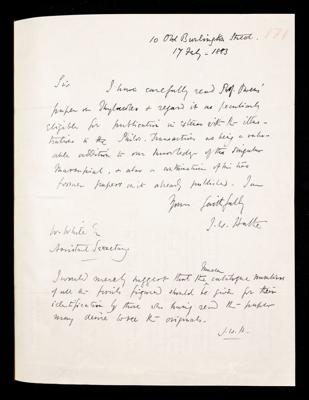 10 Old Burlington Street.
17 July - 1883
171
Sir
I have carefully read Prof. Owen's
paper on Thylacoleo & regard it as peculiarly
eligible for publication in extenso with the illus-
trations in the Philos. Transactions as being a valu-
able addition to our knowledge of this singular
Marsupial, & also a continuation of his two
former papers on it already published. I am
Yours faithfully
J. W. Hulke
W. White Esq
Assistant Secretary
I would merely suggest that the Museum catalogue numbers
of all the fossils figured should be given for their
identification by those who having read the paper
may desire to see the originals.
J. W. H.